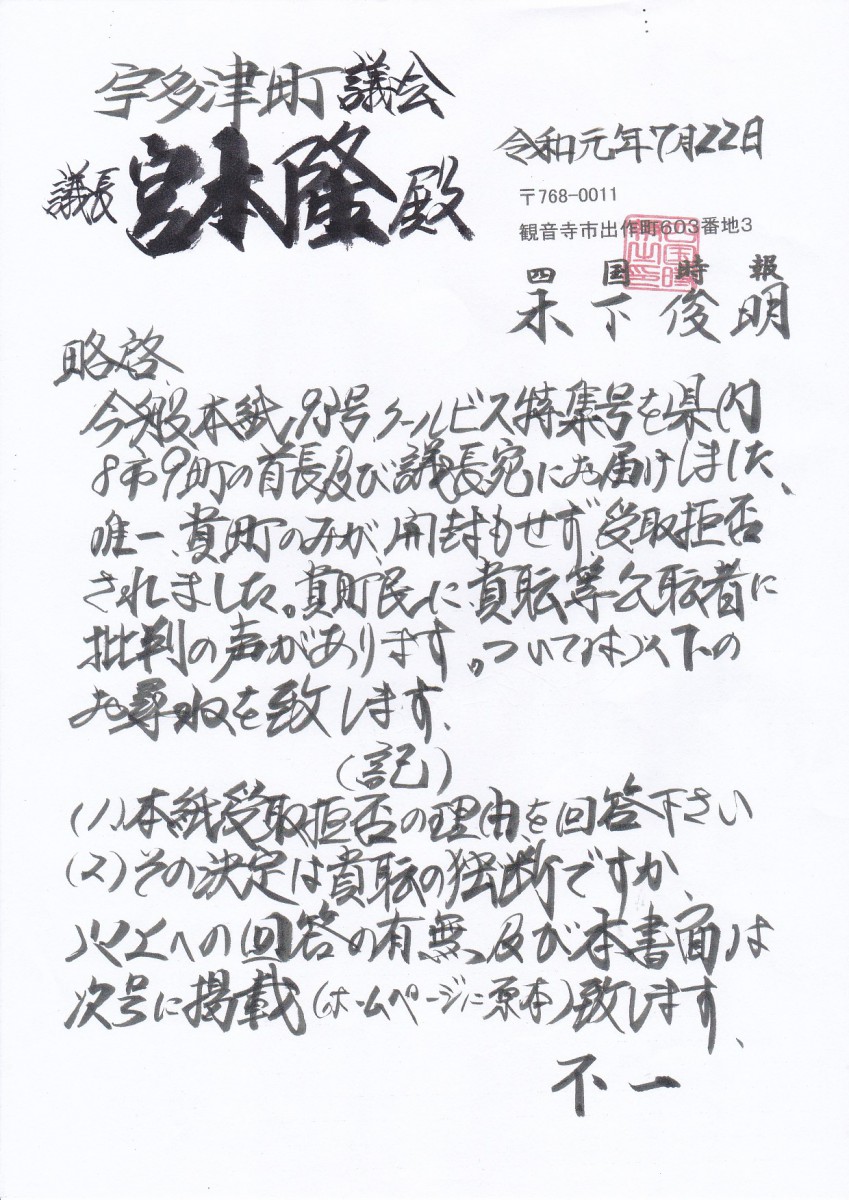 宇多津町議会
議長 宮本隆殿
令和元年7月22日
〒768-0011
観音寺市出作町603番地3
四国時報
木下俊明
略啓
今般本紙、93号、クールビズ特集号を県内
8市9町の首長及び議長宛にお届けしました、
唯一、貴町のみが、開封もせず受取拒否
されました。貴町民に貴職等公職者に
批判の声があります。ついては以下の
お尋ねを致します、
(記)
(1)本紙受取拒否の理由を回答下さい
(2)その決定は貴職の独断ですか、
以上への回答の有無、及び本書面は
次号に掲載(ホームページに原本)致します、
不一